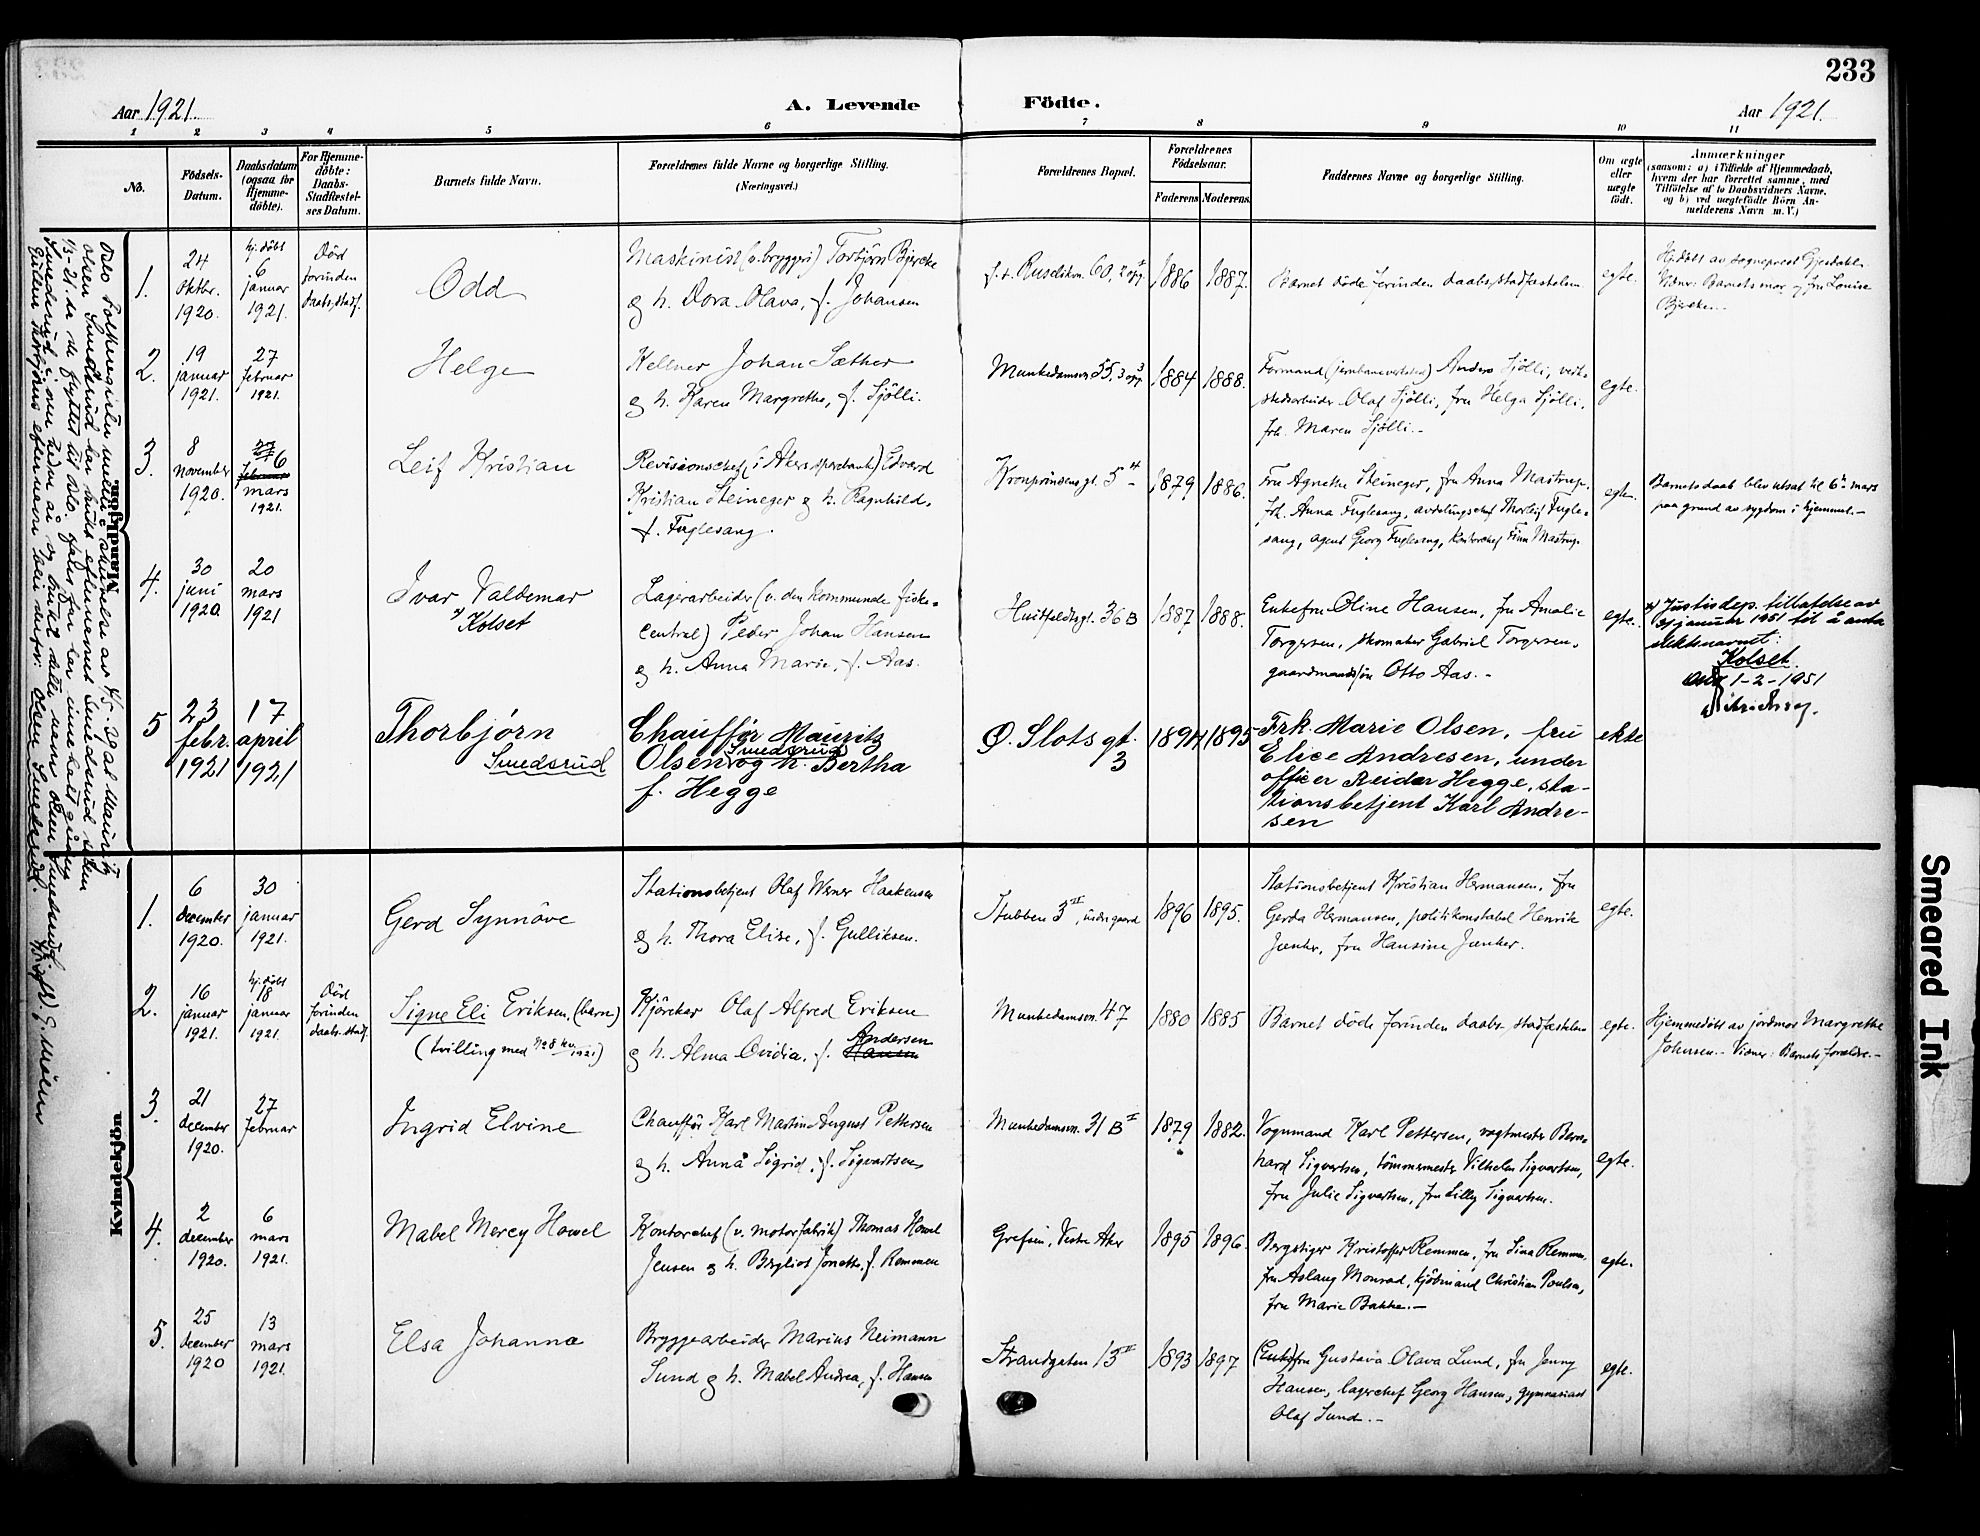 233
Aar 1921.
A. Levende Födte.
Aar 1921.
1 2 3 4 5 6 7 8 9 10 11
No.
Födsels-
Datum.
Daabsdatum
(ogsaa for
Hjemme-
döbte).
For Hjemme-
döbte:
Daabs-
Stadfæstel-
ses Datum.
Barnets fulde Navn.
Forældrenes fulde Navne og borgerlige Stilling.
(Næringsvei.)
Forældrenes Bopæl.
Forældrenes
Födselsaar.
Faderens
Moderens
Faddernes Navne og borgerlige Stilling.
Om ægte
eller
uægte
födt.
Anmærkninger
(saasom: a) i Tilfælde af Hjemmedaab,
hvem der har forrettet samme, med
Tilföielse af to Daabsvidners Navne,
og b) ved uægtefödte Börn An-
melderens Navn m. V.)
Mandkjön.
1.
24
oktbr.
1920.
hj. döbt
6
januar
1921.
Död
forinden
daabs.stadf.
Odd
Maskinist (v. bryggeri) Torbjörn Bjercke
og h. Dora Olava, f. Johansen
60,
1886
1887.
Barnet döde forinden daabs.stadfæstelsen
egte.
Hj.döbt av sogneprest Gjerdahl.
Barnets mor og fru Louise
Bjercke.
2.
19
januar
1921.
27
februar
1921.
Helge
Kellner Johan Sæther
og h. Karen Margrethe, f. Sjölli.
Munkedamsvn. 55, 3 opg.
1884
1888.
Formand (jernbaneverksted) Anders Sjölli, verk-
stedsarbeider Olaf Sjölli, fru Helga Sjölli,
frk. Maren Sjölli.-
egte.
3.
8
november
1920.
27
februar
6
mars
1921.
Leif Kristian
Revisionschef (i Akers sparebank) Edvard
Kristian Steineger og h. Ragnhild,
f. Fuglesang.
Kronprinsens gt. 5
1879
1886.
Fru Agnethe Steineger, fru Anna Mastrup,
frk. Anna Fuglesang, avdelingschef Thorleif Fugle-
sang, agent Georg Fuglesang, kontorchef Finn Mastrup.
egte.
Barnets daab blev utsat til 6te mars
paa grund av sygdom i hjemmet.-
4.
30
juni
1920.
20
mars
1921
Ivar Valdemar
x) Kolset
Lagerarbeider (v. den kommunale fiske-
central) Peder Johan Hansen
og h. Anna Marie, f. Aas.
Huitfeldtsgt. 36 B
1887
1888.
Enkefru Oline Hansen, fru Amalie
Torgersen, skomaker Gabriel Torgersen,
gaardmandssön Otto Aas.-
egte.
x) Justisdep. tillatelse av
31 januar 1951 til å anta
slektsnavnet:
Kolset.
1-2-1951
5
23
febr.
1921
17
april
1921
Thorbjörn
Smedsrud
Chaufför Mauritz
Olsen Smedsrud og h. Bertha
f. Hegge
Ö. Slots gt.
3
1894
1895
Frk. Marie Olsen, fru
Elice Andresen, under
officer Reidar Hegge, sta-
tionsbetjent Karl Andre-
sen
ekte
Kvindekjön
1.
6
december
1920.
30
januar
1921.
Gerd Synnöve
Stationsbetjent Olaf Werner Haakensen
og h. Thora Elise, f. Gulliksen.
Stubben 3 II, indre gaard
1896
1895.
Stationsbetjent Kristian Hermansen, fru
Gerda Hermansen, politikonstabel Henrik
Jænker, fru Hansine Jænker.
egte.
2.
16
januar
1921.
hj. döbt
18
januar
1921.
Död
forinden
daabs.stadf.
Signe Eli Eriksen. (barn)
(tvilling med No 8 kv./1921)
Kjörekar Olaf Alfred Eriksen
og h. Alma Ovidia, f. Hansen Andersen
Munkedamsvn. 47
1880
1885
Barnet döde forinden daabs.stadfæstelsen
egte.
Hjemmedöbt av jordmor Margrethe
Johnsen.- Vidner: Barnets forældre.-
3.
21
december
1920.
27
februar
Ingrid Elvine
Chaufför Karl Martin August Pettersen
og h. Anna Sigrid, f. Sigvartsen
Munkedamsvn. 31 B II
1879
1882.
Vognmand Karl Pettersen, vagtmester Bern-
hard Sigvartsen, tömmermester Vilhelm Sigvartsen,
fru Julie Sigvartsen, fru Lilly Sigvartsen.
egte.
4.
2
december
1920.
6
mars
1921.
Mabel Mercy Howel
Kontorchef (v. motorfabrik) Thomas Howel
Jensen og h. Bergliot Jonette, f. Remmen
Grefsen, Vestre Aker
1895
1896.
Bergstiger Kristoffer Remmen, fru Lina Remmen,
fru Aslaug Monrad, kjöbmand Christian Poulsen,
fru Marie Bakke.-
egte.
5.
25
december
1920
13
mars
1921.
Elsa Johanne
Bryggearbeider Marius Neimann
Lund og h. Mabel Andrea, f. Hansen
Strandgaten 13 II
1893
1897
(Enke)fru Gustava Olava Lund, fru Jenny
Hansen, lagerchef Georg Hansen, gymnasiast
Olaf Lund.-
egte.
Smeared Ink